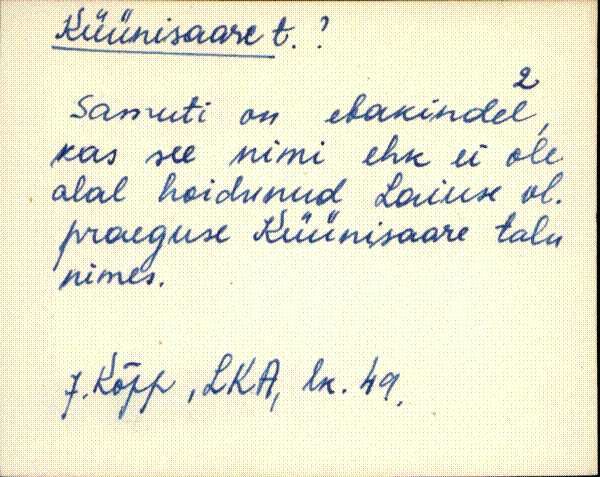 Küünisaare t. ?
2
Samuti on ebakindel,
kas see nimi ehk ei ole
alal hoidunud Laiuse vl.
praeguse Küünisaare talu
nimes.
J. Kõpp, LKA, lk. 49.